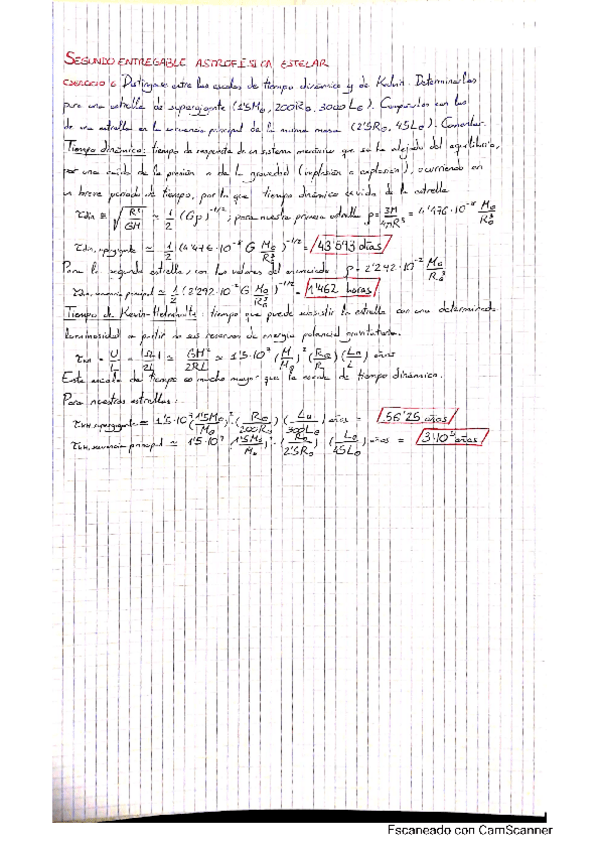 SEGUNDO ENTREGABLE ASTROFÍSICA ESTELAR
EJERCICIO 6 Distinga entre las escalas de tiempo dinámico y de Kelvin. Determínelas
para una estrella de supergigante (1'5M⊙, 200R⊙, 3000L⊙). Compárelas con las
de una estrella en la secuencia principal de la misma masa (2'5R⊙, 45L⊙). Comentar.
Tiempo dinámico: tiempo de respuesta de un sistema mecánico que se ha alejado del equilibrio,
por una caída de la presión o de la gravedad (implosión o explosión), ocurriendo en
un breve periodo de tiempo, por lo que tiempo dinámico de vida de la estrella
τdin ≅ √(R³/GM) ≃ 1/2 (Gρ)^(-1/2); para nuestra primera estrella ρ = 3M/4πR³ = 4'476·10⁻⁸ M⊙/R⊙³
τdin, supergigante ≃ 1/2 (4'476·10⁻⁸ G M⊙/R⊙³)^(-1/2) = 43'593 días
Para la segunda estrella, con los valores del enunciado: ρ = 2'292·10⁻² M⊙/R⊙³
τdin, secuencia principal ≃ 1/2 (2'292·10⁻² G M⊙/R⊙³)^(-1/2) = 1'462 horas
Tiempo de Kelvin-Helmholtz: tiempo que puede subsistir la estrella con una determinada
luminosidad a partir de sus reservas de energía potencial gravitatoria.
τKH = U/L = |Ω|/2L ≃ GM²/2RL ≃ 1'5·10⁷ (M/M⊙)² (R⊙/R) (L⊙/L) años
Esta escala de tiempo es mucho mayor que la de tiempo dinámico.
Para nuestras estrellas:
τKH, supergigante ≃ 1'5·10⁷ (1'5M⊙/M⊙)² · (R⊙/200R⊙) · (L⊙/3000L⊙) años = 56'25 años
τKH, secuencia principal ≃ 1'5·10⁷ (1'5M⊙/M⊙)² · (R⊙/2'5R⊙) (L⊙/45L⊙) años = 3·10⁵ años
Escaneado con CamScanner